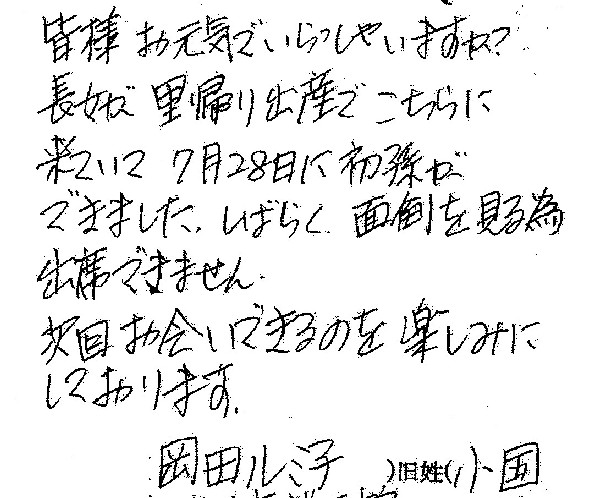 皆様 お元気でいらっしゃいますか?
長女が 里帰り出産で こちらに
来ていて 7月28日に初孫が
できました。しばらく 面倒を見る為
出席できません。
次回お会いできるのを楽しみに
しております。
岡田ルミ子 )旧姓( 小国